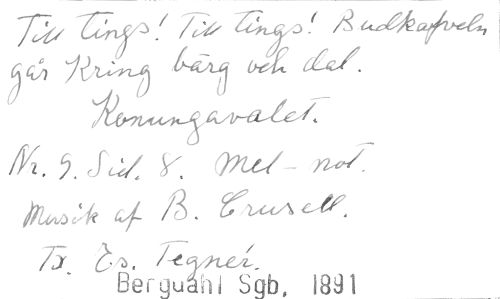 Till tings! Till tings! Budkafveln
går Kring bärg och dal.
Konungavalet.
Nr. 9. Sid. 8. Mel-not.
Musik af B. Crusell.
Tx. Es. Tegnér.
Bergvahl Sgb. 1891